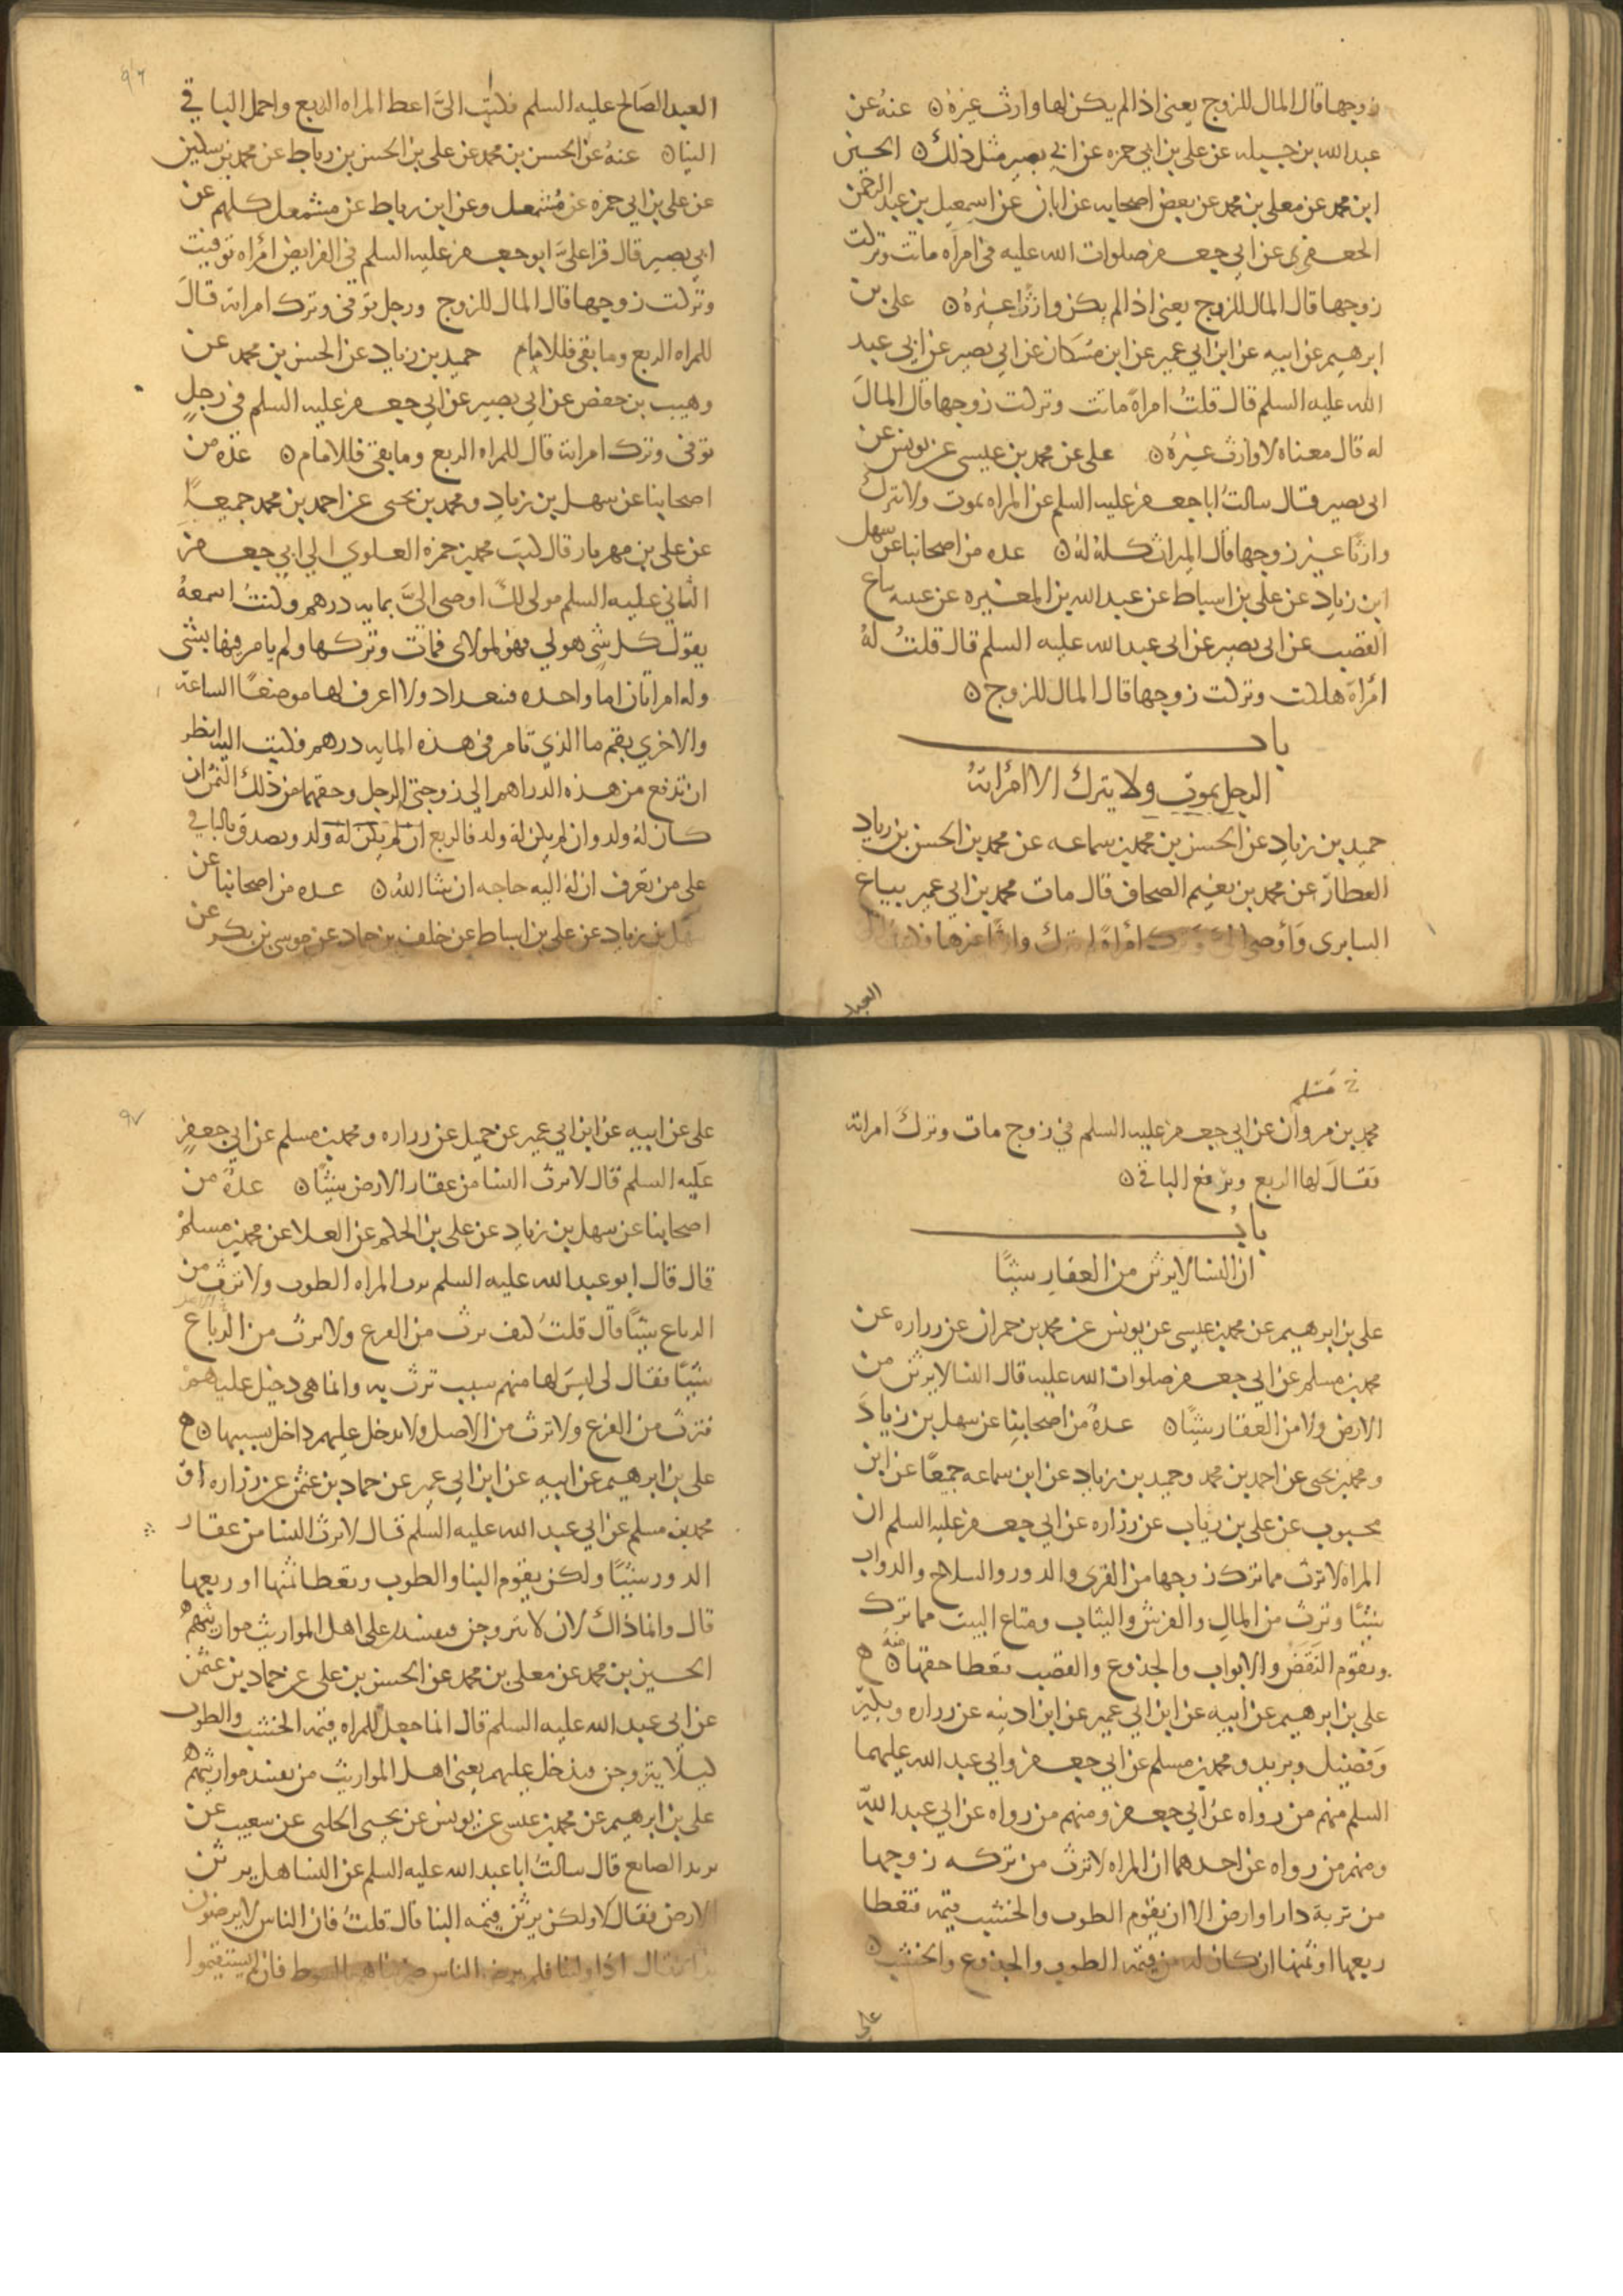 زوجها قال المال للزوج يعنى اذا لم يكن لها وارث غيره ن عنه عن
عبد الله بن جبله عن على بن ابي حمزه عن ابي بصير مثل ذلك ن الحسين
ابن محمد عن معلى بن محمد عن بعض اصحابه عن ابان عن اسمعيل بن عبد الرحمن
الجعفى عن ابي جعفر صلوات الله عليه فى امراه ماتت وتركت
زوجها قال المال للزوج يعنى اذا لم يكن وارثا غيره ن على بن
ابرهيم عن ابيه عن ابن ابي عمير عن ابن مسكان عن ابي بصير عن ابي عبد
الله عليه السلم قال قلت امراة ماتت وتركت زوجها قال المال
له قال معناه لا وارث غيره ن على عن محمد بن عيسى عن يونس عن
ابى بصير قال سالت ابا جعفر عليه السلم عن المراه تموت ولا تترك
وارثا غير زوجها قال الميراث كله له ن عده من اصحابنا عن سهل
ابن زياد عن على بن اسباط عن عبد الله بن المغيره عن عيينه بياع
القصب عن ابى بصير عن ابى عبد الله عليه السلم قال قلت له
امرأة هلكت وتركت زوجها قال المال للزوج ن
باب
الرجل يموت ولا يترك الا امرأته
حميد بن زياد عن الحسن بن محمد بن سماعه عن محمد بن الحسن بن زياد
العطار عن محمد بن نعيم الصحاف قال مات محمد بن ابي عمير بياع
السابرى وأوصى الي وترك امرأة لم يترك وارثا غيرها فكتبت الى
العبد
٩٦
العبد الصالح عليه السلم فكتب الىّ اعط المراه الربع واحمل الباقي
الينا ن عنه عن الحسن بن محمد عن على بن الحسن بن رباط عن محمد بن سكين
عن على بن ابي حمزه عن مُشمعل وعن ابن رباط عن مشمعل كلهم عن
ابي بصير قال قرا علىّ ابو جعفر عليه السلم فى الفرايض امرأه توفيت
وتركت زوجها قال المال للزوج ورجل توفى وترك امراته قال
للمراه الربع وما بقى فللامام حميد بن زياد عن الحسن بن محمد عن
وهيب بن حفص عن ابي بصير عن ابي جعفر عليه السلم فى رجل
توفى وترك امراته قال للمراه الربع وما بقى فللامام ن عدة من
اصحابنا عن سهل بن زياد ومحمد بن يحيى عن احمد بن محمد جميعًا
عن على بن مهريار قال كتب محمد بن حمزه العلوي الي ابي جعفر
الثانى عليه السلم مولى لك اوصى الىّ بمايه درهم وكنت اسمعه
يقول كل شى هو لي فهو لمولاى فمات وتركها ولم يامر فيها بشى
وله امراتان اما واحده فببغداد ولا اعرف لها موضعًا الساعة
والاخري بقم ما الذي تامر فى هذه المايه درهم فكتب اليه انظر
ان تدفع من هذه الدراهم الي زوجتى الرجل وحقهما من ذلك الثمن ان
كان له ولد وان لم يكن له ولد فالربع ان لم يكن له ولد وتصدق بالباقي
على من تعرف ان له اليه حاجه ان شا الله ن عده من اصحابنا عن
سهل بن زياد عن على بن اسباط عن خلف بن حماد عن موسى بن بكر عن
مسلم
محمد بن مروان عن ابي جعفر عليه السلم فى زوج مات وترك امراته
فقال لها الربع وترفع الباقى ن
باب
ان النسا لا يرثن من العقار شيئًا
على بن ابرهيم عن محمد بن عيسى عن يونس عن محمد بن حمران عن زراره عن
محمد بن مسلم عن ابي جعفر صلوات الله عليه قال النسا لا يرثن من
الارض ولا من العقار شيئًا ن عدة من اصحابنا عن سهل بن زياد
ومحمد بن يحيى عن احمد بن محمد وحميد بن زياد عن ابن سماعه جميعًا عن ابن
محبوب عن على بن رياب عن زراره عن ابي جعفر عليه السلم ان
المراه لا ترث مما ترك زوجها من القرى والدور والسلاح والدواب
شيئًا وترث من المال والفرش والثياب ومتاع البيت مما ترك
وتقوم النقض والابواب والجذوع والقصب فتعطا حقها منه ن
على بن ابرهيم عن ابيه عن ابن ابي عمير عن ابن اذينه عن زراره وبكير
وفضيل وبريد ومحمد بن مسلم عن ابي جعفر وابي عبد الله عليهما
السلم منهم من رواه عن ابي جعفر ومنهم من رواه عن ابي عبد الله
ومنهم من رواه عن احدهما ان المراه لا ترث من تركه زوجها
من تربة دار او ارض الا ان يقوم الطوب والخشب قيمة فتعطا
ربعها او ثمنها ان كان له من قيمة الطوب والجذوع والخشب ن
على
٩٧
على عن ابيه عن ابن ابي عمير عن جميل عن زراره ومحمد بن مسلم عن ابي جعفر
عليه السلم قال لا ترث النسا من عقار الارض شيئًا ن عدة من
اصحابنا عن سهل بن زياد عن على بن الحكم عن العلا عن محمد بن مسلم
قال قال ابو عبد الله عليه السلم ترث المراه الطوب ولا ترث من
الرباع شيئًا قال قلت كيف ترث من الفرع ولا ترث من الرباع
شيئًا فقال لى ليس لها منهم سبب ترث به وانما هى دخيل عليهم
فترث من الفرع ولا ترث من الاصل ولا يدخل عليهم داخل بسببها ن
على بن ابرهيم عن ابيه عن ابن ابي عمير عن حماد بن عثمن عن زراره او
محمد بن مسلم عن ابي عبد الله عليه السلم قال لا ترث النسا من عقار
الدور شيئًا ولكن يقوم البنا والطوب وتعطا ثمنها او ربعها
قال وانما ذاك لان لا يتزوجن فيفسدن على اهل المواريث مواريثهم
الحسين بن محمد عن معلى بن محمد عن الحسن بن على عن حماد بن عثمن
عن ابي عبد الله عليه السلم قال انما جعل للمراه قيمة الخشب والطوب
ليلا يتزوجن فيدخل عليهم يعنى اهل المواريث من يفسد مواريثهم
على بن ابرهيم عن محمد بن عيسى عن يونس عن يحيى الحلبى عن شعيب عن
يزيد الصايع قال سالت ابا عبد الله عليه السلم عن النسا هل يرثن
الارض فقال لا ولكن يرثن قيمه البنا قال قلت فان الناس لا يرضون
بذا فقال اذا ولينا فلم يرض الناس ضربناهم بالسوط فان لم يستقيموا